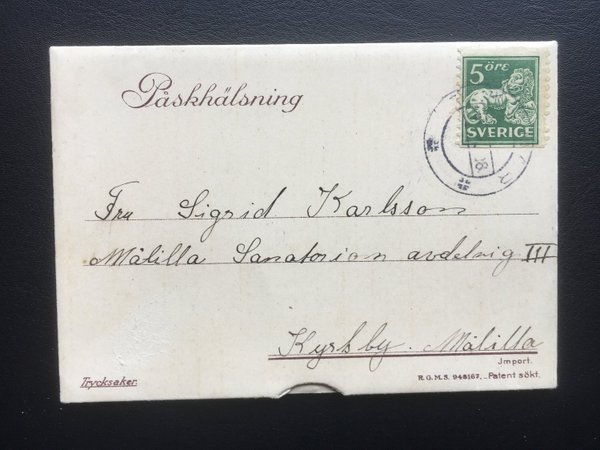 Påskhälsning
5 ÖRE
SVERIGE
28
TR
Fru Sigrid Karlsson
Målilla Sanatorion avdelnig III
Kyrkby. Målilla
Import.
Trycksaker.
R.G.M.S. 948167. Patent sökt.